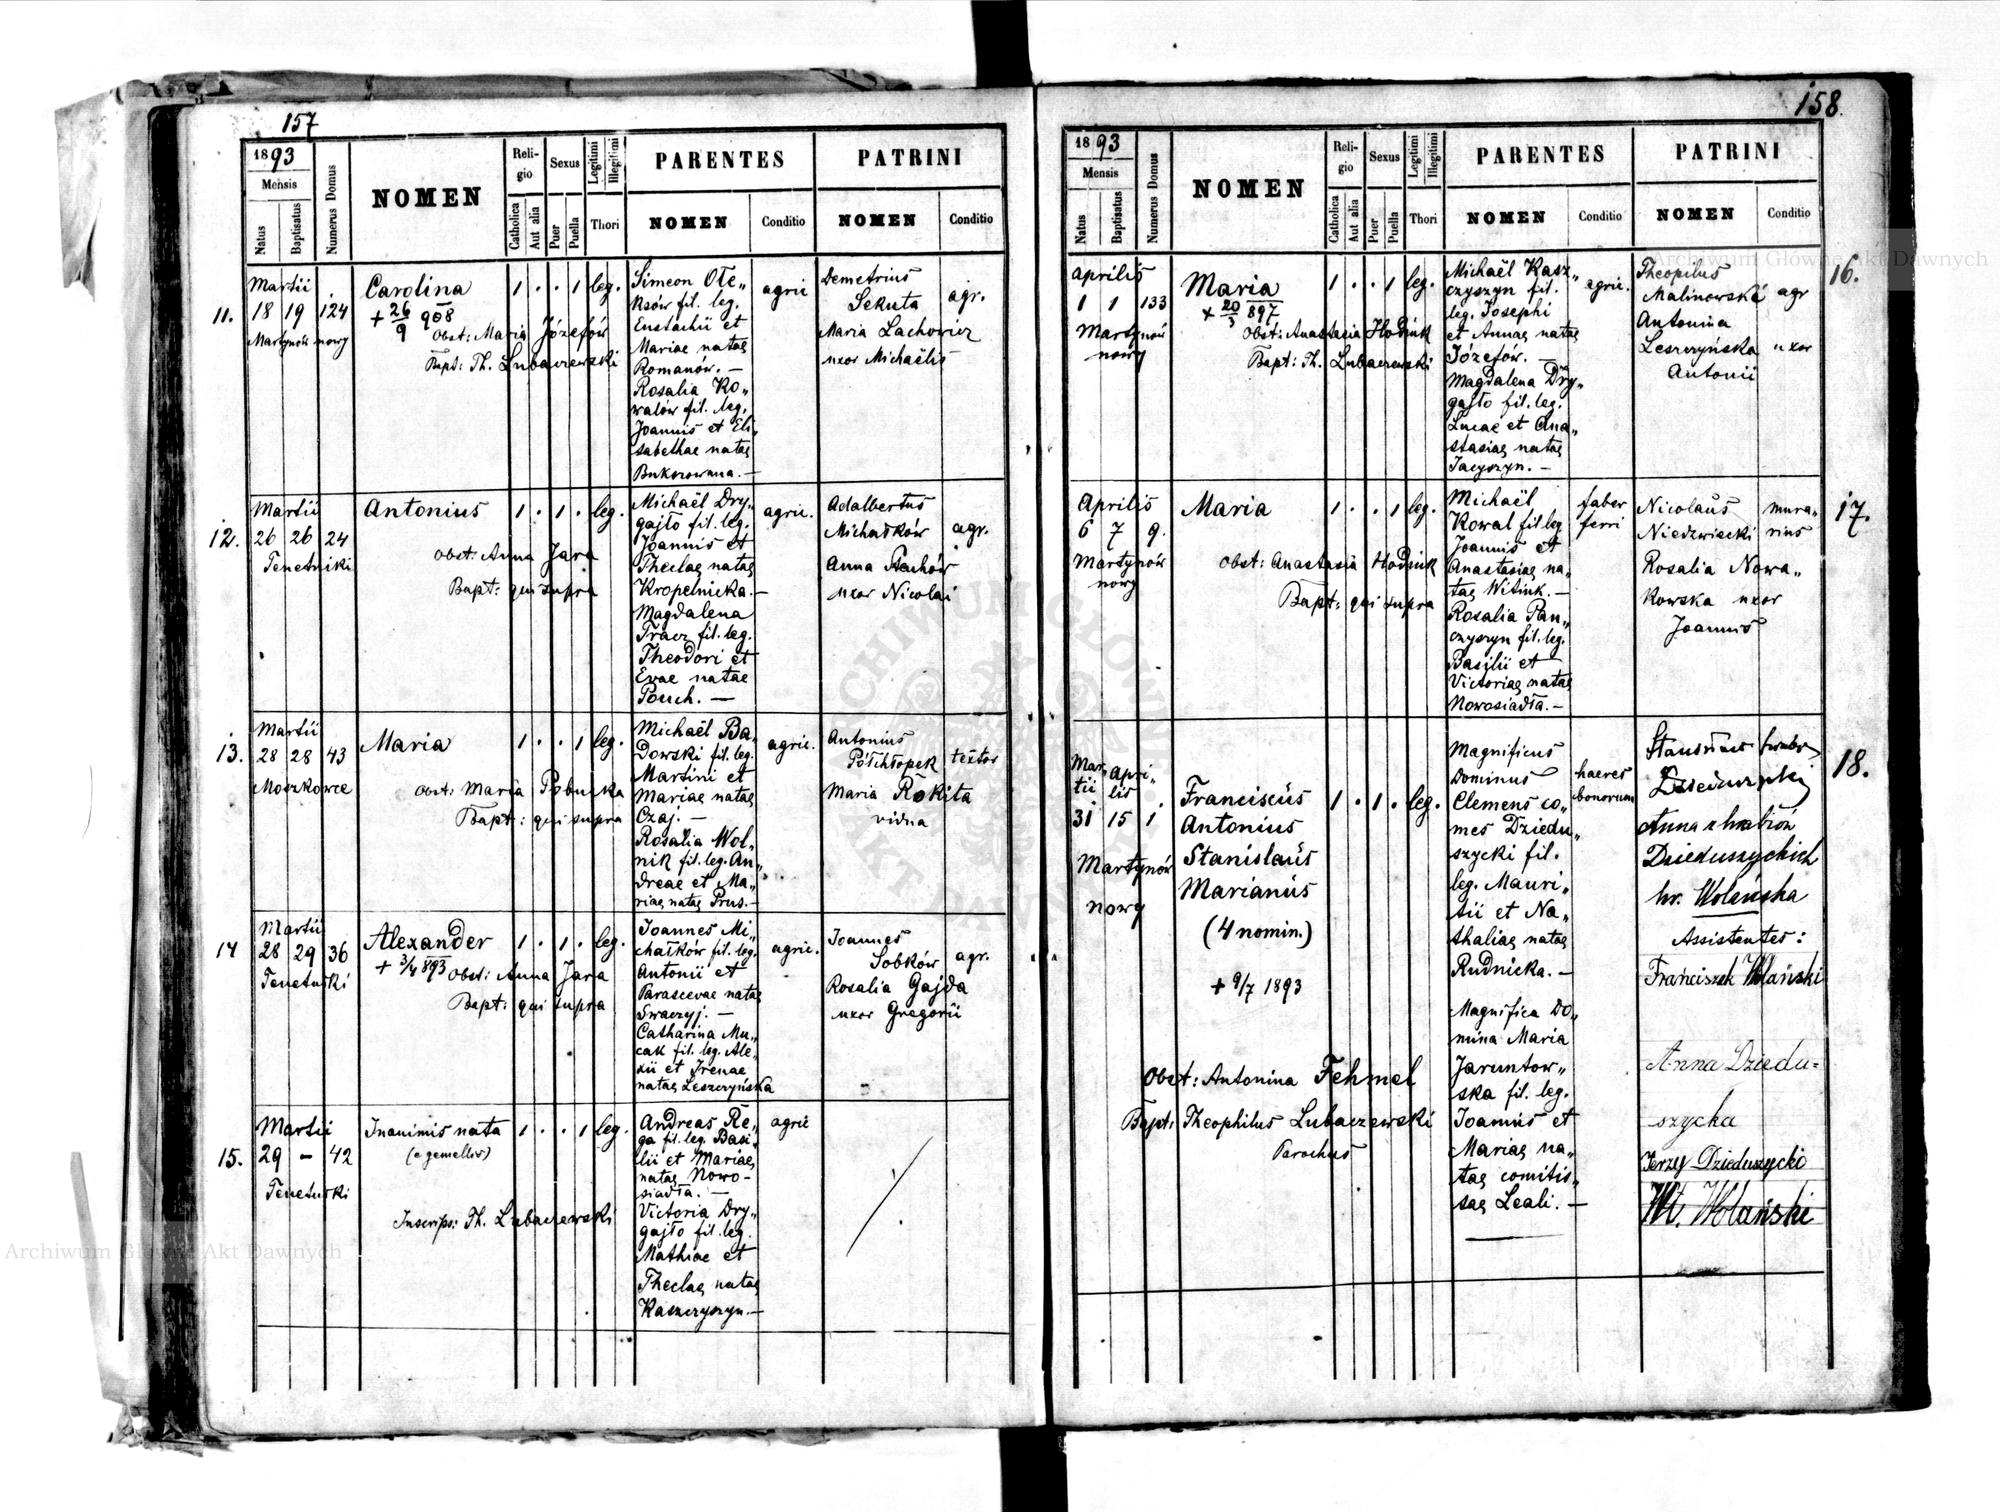 157
1893
Mensis
Natus
Baptisatus
Numerus Domus
NOMEN
Religio
Catholica
Aut alia
Sexus
Puer
Puella
Legitimi
Illegitimi
Thori
PARENTES
NOMEN
Conditio
PATRINI
NOMEN
Conditio
11.
Martii
18 19 124
Martynów nowy
Carolina
+ 26/9 908
Obst: Maria Józefów
Bapt: Th. Lubaczewski
1 . . 1 leg.
Simeon Ole„
ksów fil. leg.
Eustachii et
Mariae natae
Romanów. —
Rosalia Ko„
walów fil. leg.
Joannis et Eli„
sabethae natae
Bukorowana. —
agric
Demetrius
Sekuta agr.
Maria Lachowicz
uxor Michaëlis
12.
Martii
26 26 24
Tenetniki
Antonius
Obst: Anna Jara
Bapt: qui supra
1 . 1 . leg.
Michaël Dry„
gajło fil. leg.
Joannis et
Theclae natae
Kropelnicka. —
Magdalena
Tracz fil. leg.
Theodori et
Evae natae
Pouch. —
agric.
Adalbertus
Michałków agr.
Anna
uxor Nicolai
13.
Martii
28 28 43
Moszkowce
Maria
Obst: Maria
Bapt: qui supra
1 . . 1 leg.
Michaël Ba„
dowski fil. leg.
Martini et
Mariae natae
Czaj. —
Rosalia Wol„
nik fil. leg. An„
dreae et Ma„
riae natae Prus. —
agric.
Antonius
Półchłopek textor
Maria Rokita
vidua
14
Martii
28 29 36
Tenetniki
Alexander
+ 3/4 893
Obst: Anna Jara
Bapt: qui supra
1 . 1 . leg.
Joannes Mi„
chałków fil. leg.
Antonii et
Parascevae natae
Swaczyj. —
Catharina Mu„
cak fil. leg. Ale„
xii et Irenae
natae Leszczyńska
agric.
Joannes
Sobków agr.
Rosalia Gajda
uxor Gregorii
15.
Martii
29 — 42
Tenetniki
Inanimis nata
(e gemellis)
Inscrips: Th. Lubaczewski
1 . . 1 leg.
Andreas Re„
ga fil. leg. Basi„
lii et Mariae
natae Nowo-
siadła. —
Victoria Dry„
gajło fil. leg.
Mathiae et
Theclae natae
Kaszczyszyn. —
agric
158
1893
Mensis
Natus
Baptisatus
Numerus Domus
NOMEN
Religio
Catholica
Aut alia
Sexus
Puer
Puella
Legitimi
Illegitimi
Thori
PARENTES
NOMEN
Conditio
PATRINI
NOMEN
Conditio
Aprilis
1 1 133
Martynów
nowy
Maria
+ 20/3 897
Obst: Anastasia Hodiuk
Bapt: Th. Lubaczewski
1 . . 1 leg.
Michaël Kasz„
czyszyn fil.
leg. Josephi
et Annae natae
Józefów. —
Magdalena Dry„
gajło fil. leg.
Lucae et Ana„
stasiae natae
Jacyszyn. —
agric.
Theophilus
Malinowski agr
Antonina
Leszczyńska uxor
Antonii
16.
Aprilis
6 7 9.
Martynów
nowy
Maria
Obst: Anastasia Hodiuk
Bapt: qui supra
1 . . 1 leg.
Michaël
Kowal fil leg
Joannis et
Anastasiae na„
tae Witiuk. —
Rosalia Pan„
czyszyn fil. leg.
Basilii et
Victoriae natae
Nowosiadła. —
faber
ferri
Nicolaus mura-
Niedzwiecki rius
Rosalia Nowa„
kowska uxor
Joannis
17.
Mar- Apri-
tii lis
31 15 1
Martynów
nowy
Franciscus
Antonius
Stanislaus
Marianus
(4 nomin.)
+ 9/7 1893
Obst: Antonina Fehmel
Bapt: Theophilus Lubaczewski
Parochus
1 . 1 . leg.
Magnificus
Dominus
Clemens co„
mes Dziedu„
szycki fil.
leg. Mauri„
tii et Na„
thaliae natae
Rudnicka. —
Magnifica Do„
mina Maria
Jaruntow„
ska fil. leg.
Joannis et
Mariae na„
tae comitis„
sae Leali. —
haeres
bonorum
Stanisław hrabia
Dzieduszycki
Anna z hrabiów
Dzieduszyckich
hr. Wolańska
Assistentes:
Franciszek Wolański
Anna Dziedu=
szycka
Jerzy Dzieduszycki
Wł. Wolański
18.
Archiwum Główne Akt Dawnych
ARCHIWUM GŁÓWNE AKT DAWNYCH
Archiwum Główne Akt Dawnych